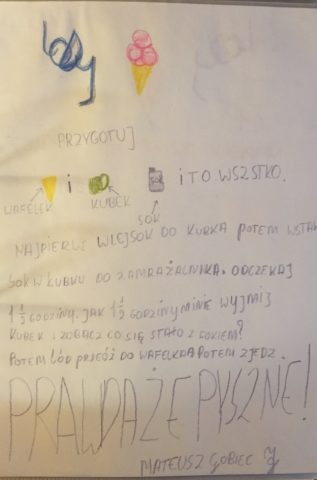 lody
PRZYGOTUJ
i SOK i TO WSZSTKO.
WAFELEK KUBEK SOK
NAJPIERW WLEJSOK DO KUBKA POTEM WSTAW
SOK W KUBKU DO ZAMRAŻALNIKA. ODCZEKAJ
1 1/2 GODZINY. JAK 1 1/2 GODZINY MINIE WYJMIJ
KUBEK I ZOBACZ CO SIĘ STAŁO Z SOKIEM?
POTEM LÓD DO WAFELKA POTEM ZJEDZ.
PRAWDA ŻE PYSZNE!
MATEUSZ GOBIEC